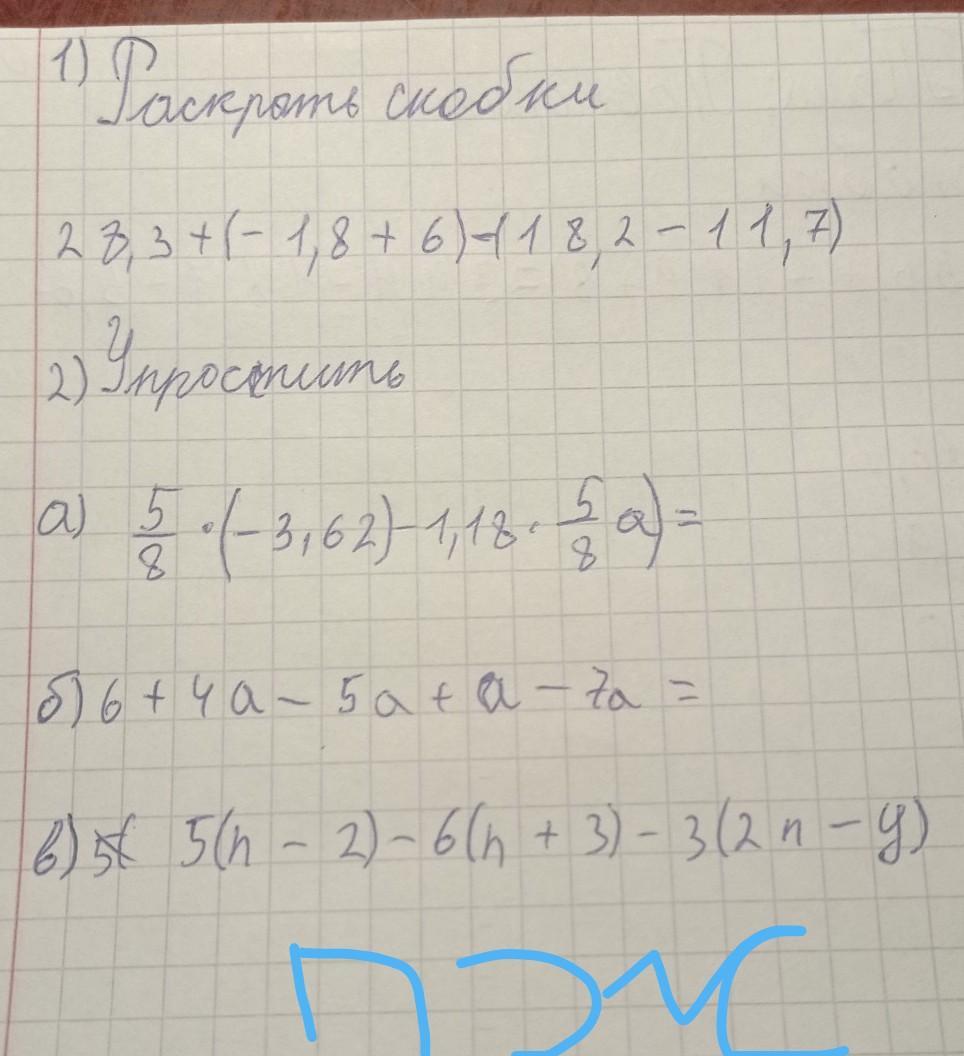 1) Раскрыть скобки
28,3+(-1,8+6)-(18,2-11,7)
2) Упростить
а) 5/8 · (-3,62)-1,18 · 5/8 a)=
б) 6+4a-5a+a-7a=
в) 5( 5(n-2)-6(n+3)-3(2n-y)